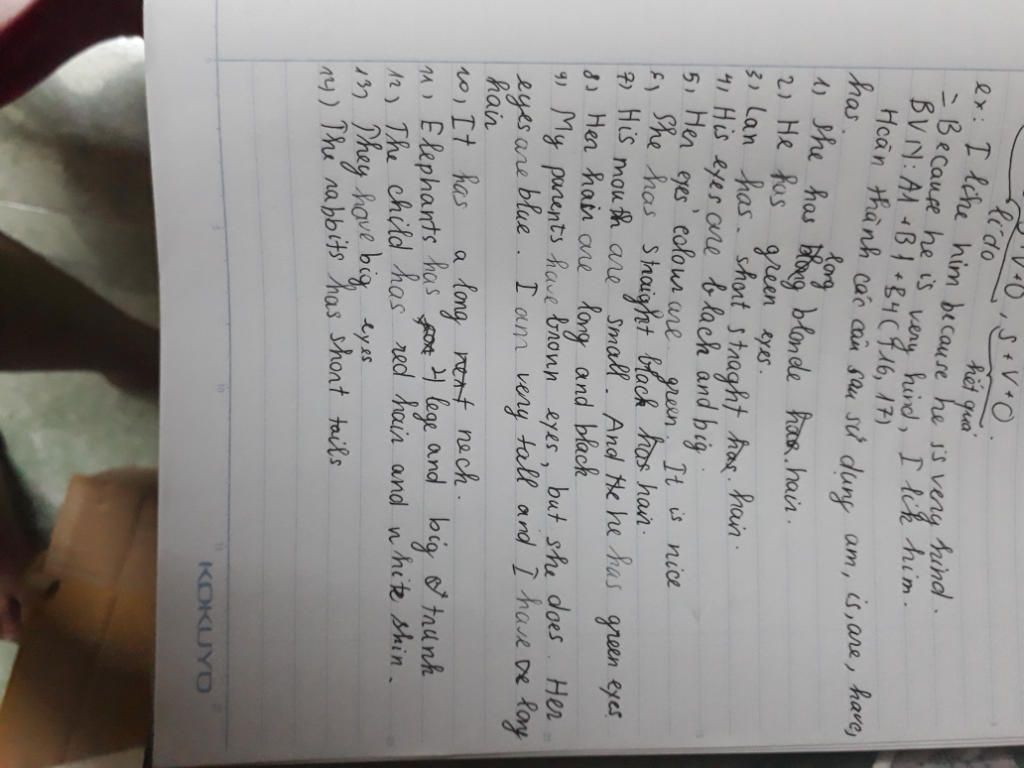 S+V+O, S+V+O.
lí do kết quả
ex: I like him because he is very kind.
= Because he is very kind, I lik him.
BVN: A1 + B1 + B4 (916, 17)
Hoàn thành các câu sau sử dụng am, is, are, have,
has.
1, She has long blonde hair.
2, He has green eyes.
3, Lan has short straght hair.
4, His eyes are black and big.
5, Her eyes' colour are green. It is nice
6, She has straight black hair.
7, His mouth are small. And he has green eyes
8, Her hair are long and black
9, My parents have brown eyes, but she does. Her
eyes are blue. I am very tall and I have long
hair
10, It has a long neck.
11, Elephants has 4 legs and big trunk
12, The child has red hair and white skin.
13, They have big eyes
14, The rabbits has short tails
KOKUYO